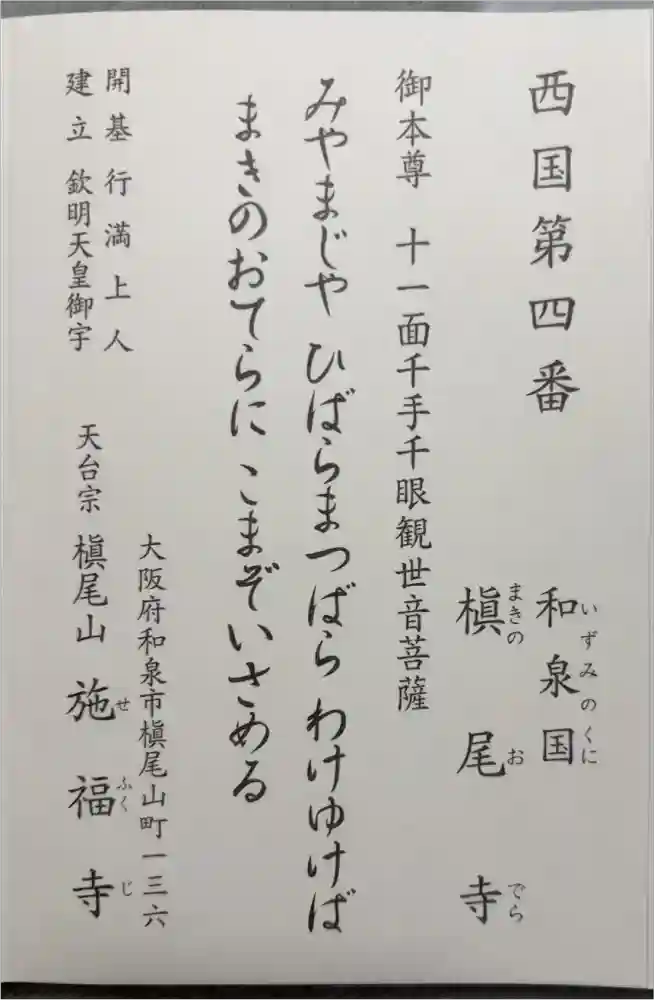 西国第四番
和泉国
いずみのくに
槇尾寺
まきのおでら
御本尊 十一面千手千眼観世音菩薩
みやまじや ひばらまつばら わけゆけば
まきのおてらに こまぞいさめる
開基 行満上人
建立 欽明天皇御宇
大阪府和泉市槇尾山町一三六
天台宗 槇尾山 施福寺
せふくじ